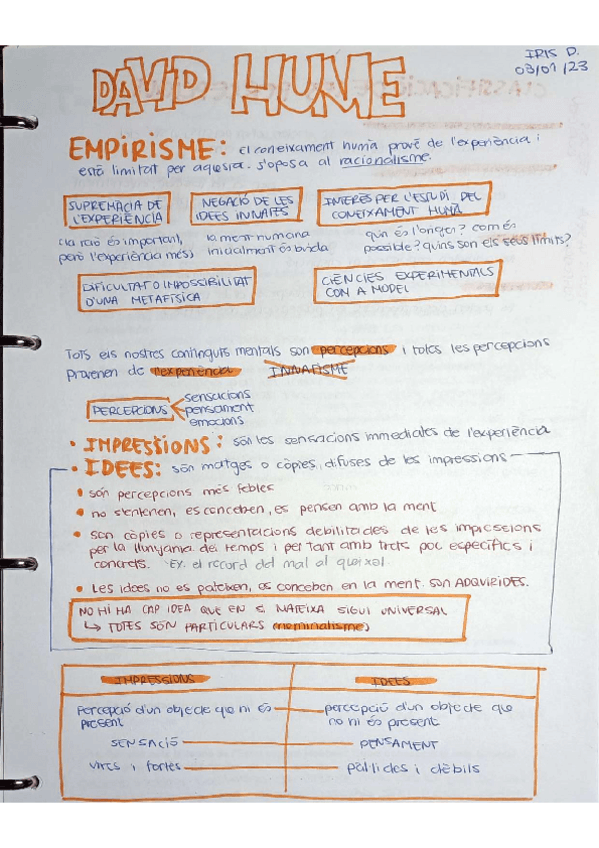 IRIS D.
03/01/23
DAVID HUME
EMPIRISME: el coneixament humà prové de l'experiència i
està limitat per aquesta. s'oposa al racionalisme.
SUPREMACIA DE
L'EXPERIÈNCIA
NEGACIÓ DE LES
IDEES INNATES
INTERÈS PER L'ESTUDI DEL
CONEIXAMENT HUMÀ
(la raó és important,
però l'experiència més)
la ment humana
inicialment és buida
quin és l'origen? com és
possible? quins son els seus límits?
DIFICULTAT O IMPOSSIBILITAT
D'UNA METAFÍSICA
CIÈNCIES EXPERIMENTALS
COM A MODEL
Tots els nostres continguts mentals son percepcions i totes les percepcions
provenen de l'experiència INNATISME
PERCEPCIONS
sensacions
pensament
emocions
• IMPRESSIONS: són les sensacions immediates de l'experiència
• IDEES: són imatges o còpies difuses de les impressions
• són percepcions més febles
• no s'entenen, es conceben, es pensen amb la ment
• són còpies o representacions debilitades de les impressions
per la llunyania del temps i per tant amb trets poc específics i
concrets. Ex. el record del mal al queixal.
• Les idees no es pateixen, es conceben en la ment. SON ADQUIRIDES.
NO HI HA CAP IDEA QUE EN SI MATEIXA SIGUI UNIVERSAL
↳ TOTES SÓN PARTICULARS (nominalisme)
IMPRESSIONS IDEES
Percepció d'un objecte que ni és
present
percepció d'un objecte que
no hi és present
SENSACIÓ PENSAMENT
vives i fortes pàl·lides i dèbils